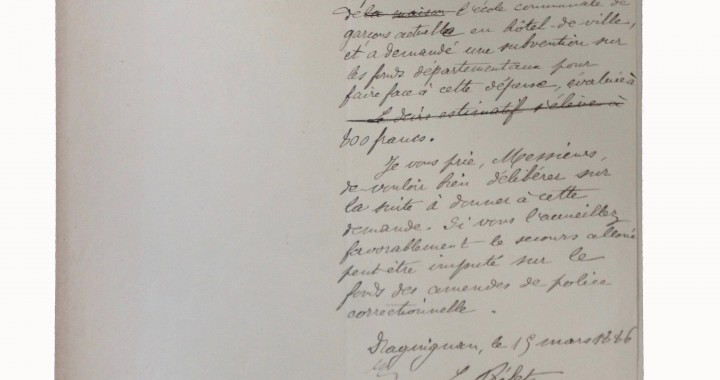 de la maison l'école communale de
garçons actuelle en hôtel-de-ville,
et a demandé une subvention sur
les fonds départementaux pour
faire face à cette dépense, évaluée à
le devis estimatif s'élève à
800 francs.
Je vous prie, Messieurs,
de vouloir bien délibérer sur
la suite à donner à cette
demande. Si vous l'accueillez
favorablement le secours alloué
peut être imputé sur le
fonds des amendes de police
correctionnelle.
Draguignan, le 15 mars 1886
Le Préfet